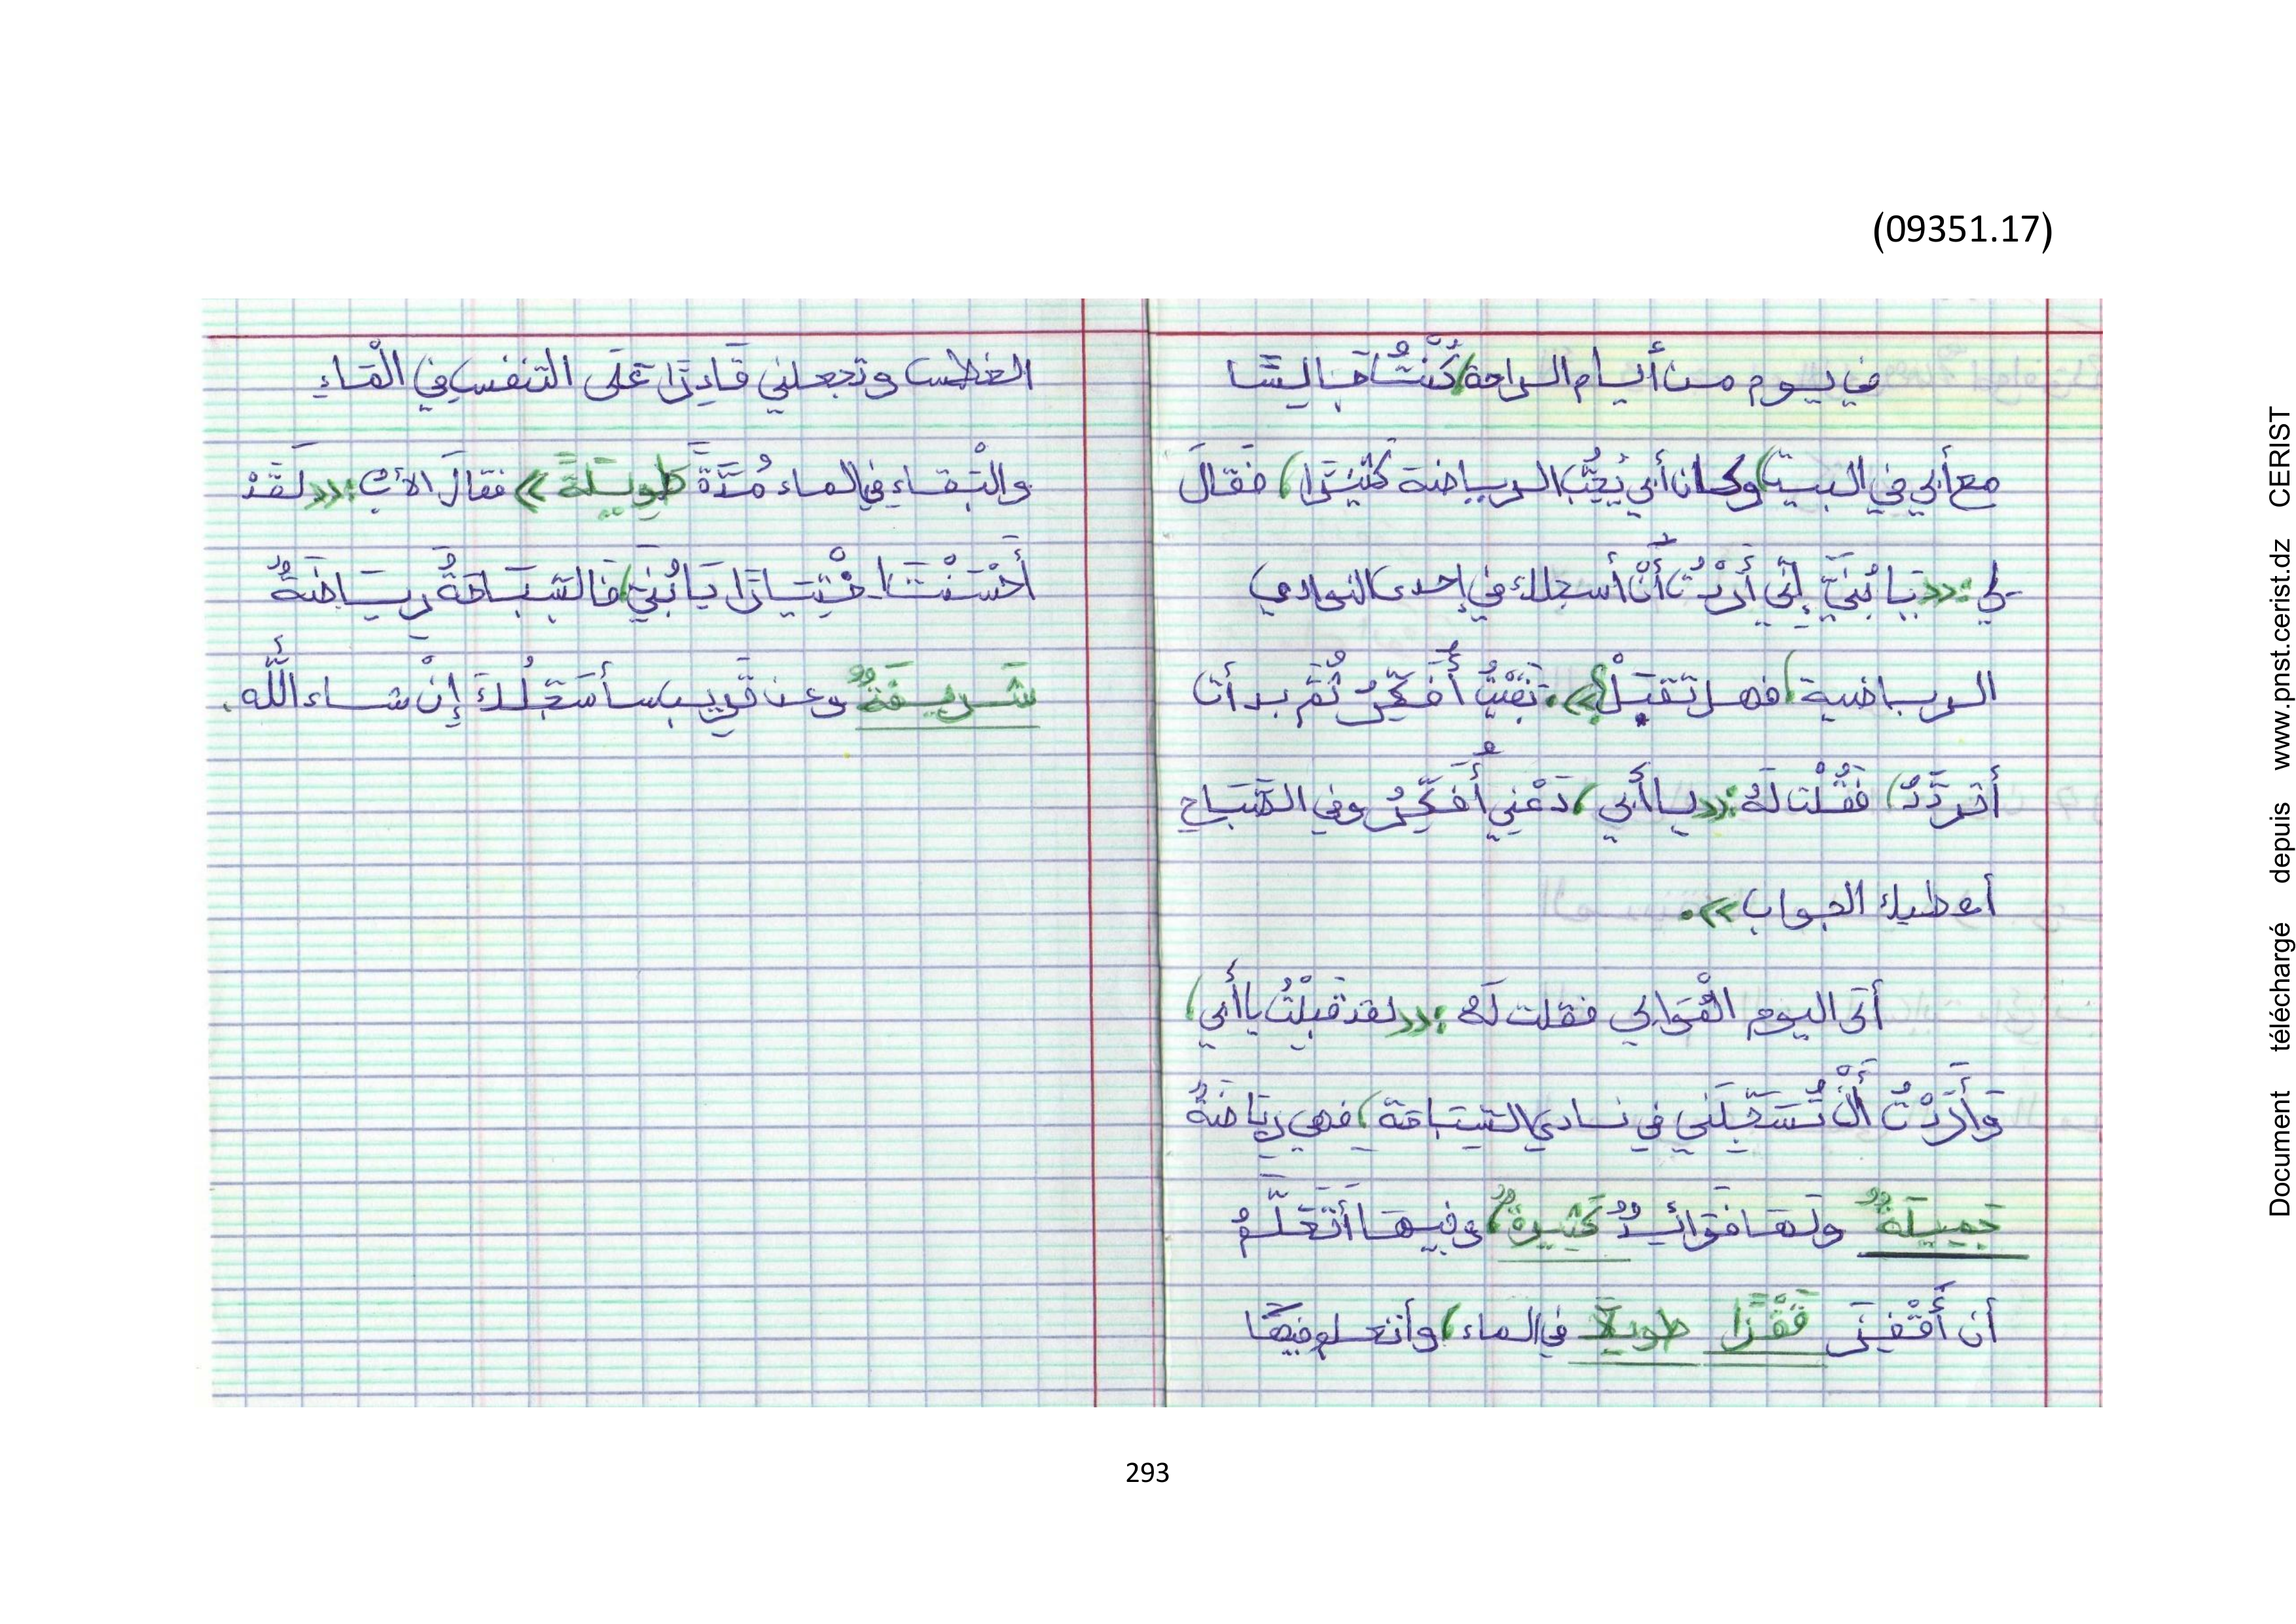 (09351.17)
في يوم من أيام الراحة، كُنْتُ جَالِسًا
مع أبي في البيت، وكان أبي يُحِبُّ الرياضة كَثِيرًا، فَقَالَ
لي: «يَا بُنَيَّ إِنِّي أَرَدْتُ أَنْ أسجلك في إحدى النوادي
الرياضية، فهل تقبَلْ؟». بَقِيْتُ أُفَكِّرُ ثُمَّ بدأت
أتردَّدُ، فَقُلْت لَهُ: «يا أَبي، دَعْنِي أُفَكِّرُ وفي الصَّبَاحِ
أعطيك الجواب».
أتى اليوم الْمُوَالِي فقلت لَهُ: «لقد قَبِلْتُ يا أَبي،
وَأَرَدْتُ أَنْ تُسَجِّلَنِي في نادي السِّبَاحَة، فهي رِيَاضَةٌ
جَمِيلَةٌ ولَهَا فَوَائِدٌ كَثِيرةٌ، وفيهَا أَتَعَلَّمُ
أن أَقْفِزَ قَفْزًا طويلًا في الماء، وأتعلم فِيهَا
الغطس وتجعلني قَادِرًا عَلَى التنفس فِي الْمَاءِ
والْبَقاءِ فِي الماء مُدَّةً طَوِيلَةً» فقالَ الأبُ: «لَقَدْ
أَحْسَنْتَ اخْتِيَارًا يَا بُنَيَّ، فَالسِّبَاحَةُ رِيَاضَةٌ
شَرِيفَةٌ وعن قَرِيب سأُسَجِّلُكَ إِنْ شاء اللَّه.
293
Document téléchargé depuis www.pnst.cerist.dz CERIST